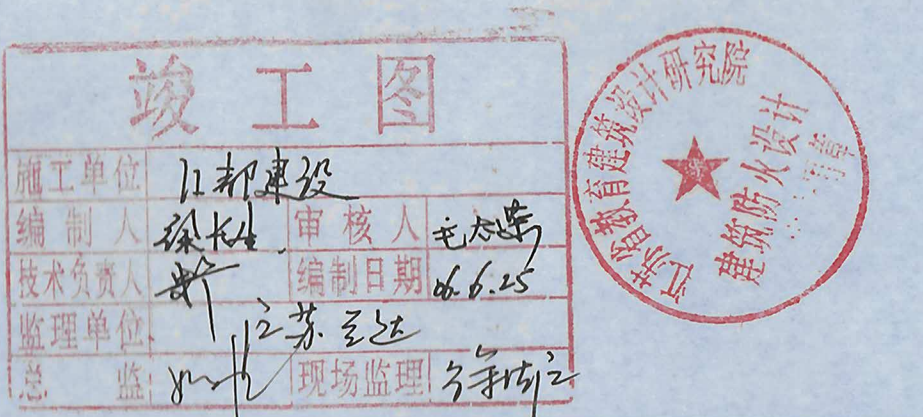 竣工图
施工单位 江都建设
编制人 徐长生 审核人
技术负责人 编制日期 06.6.25
监理单位 江苏兰达
总监 现场监理
江苏省教育建筑设计研究院
建筑防火设计
专用章